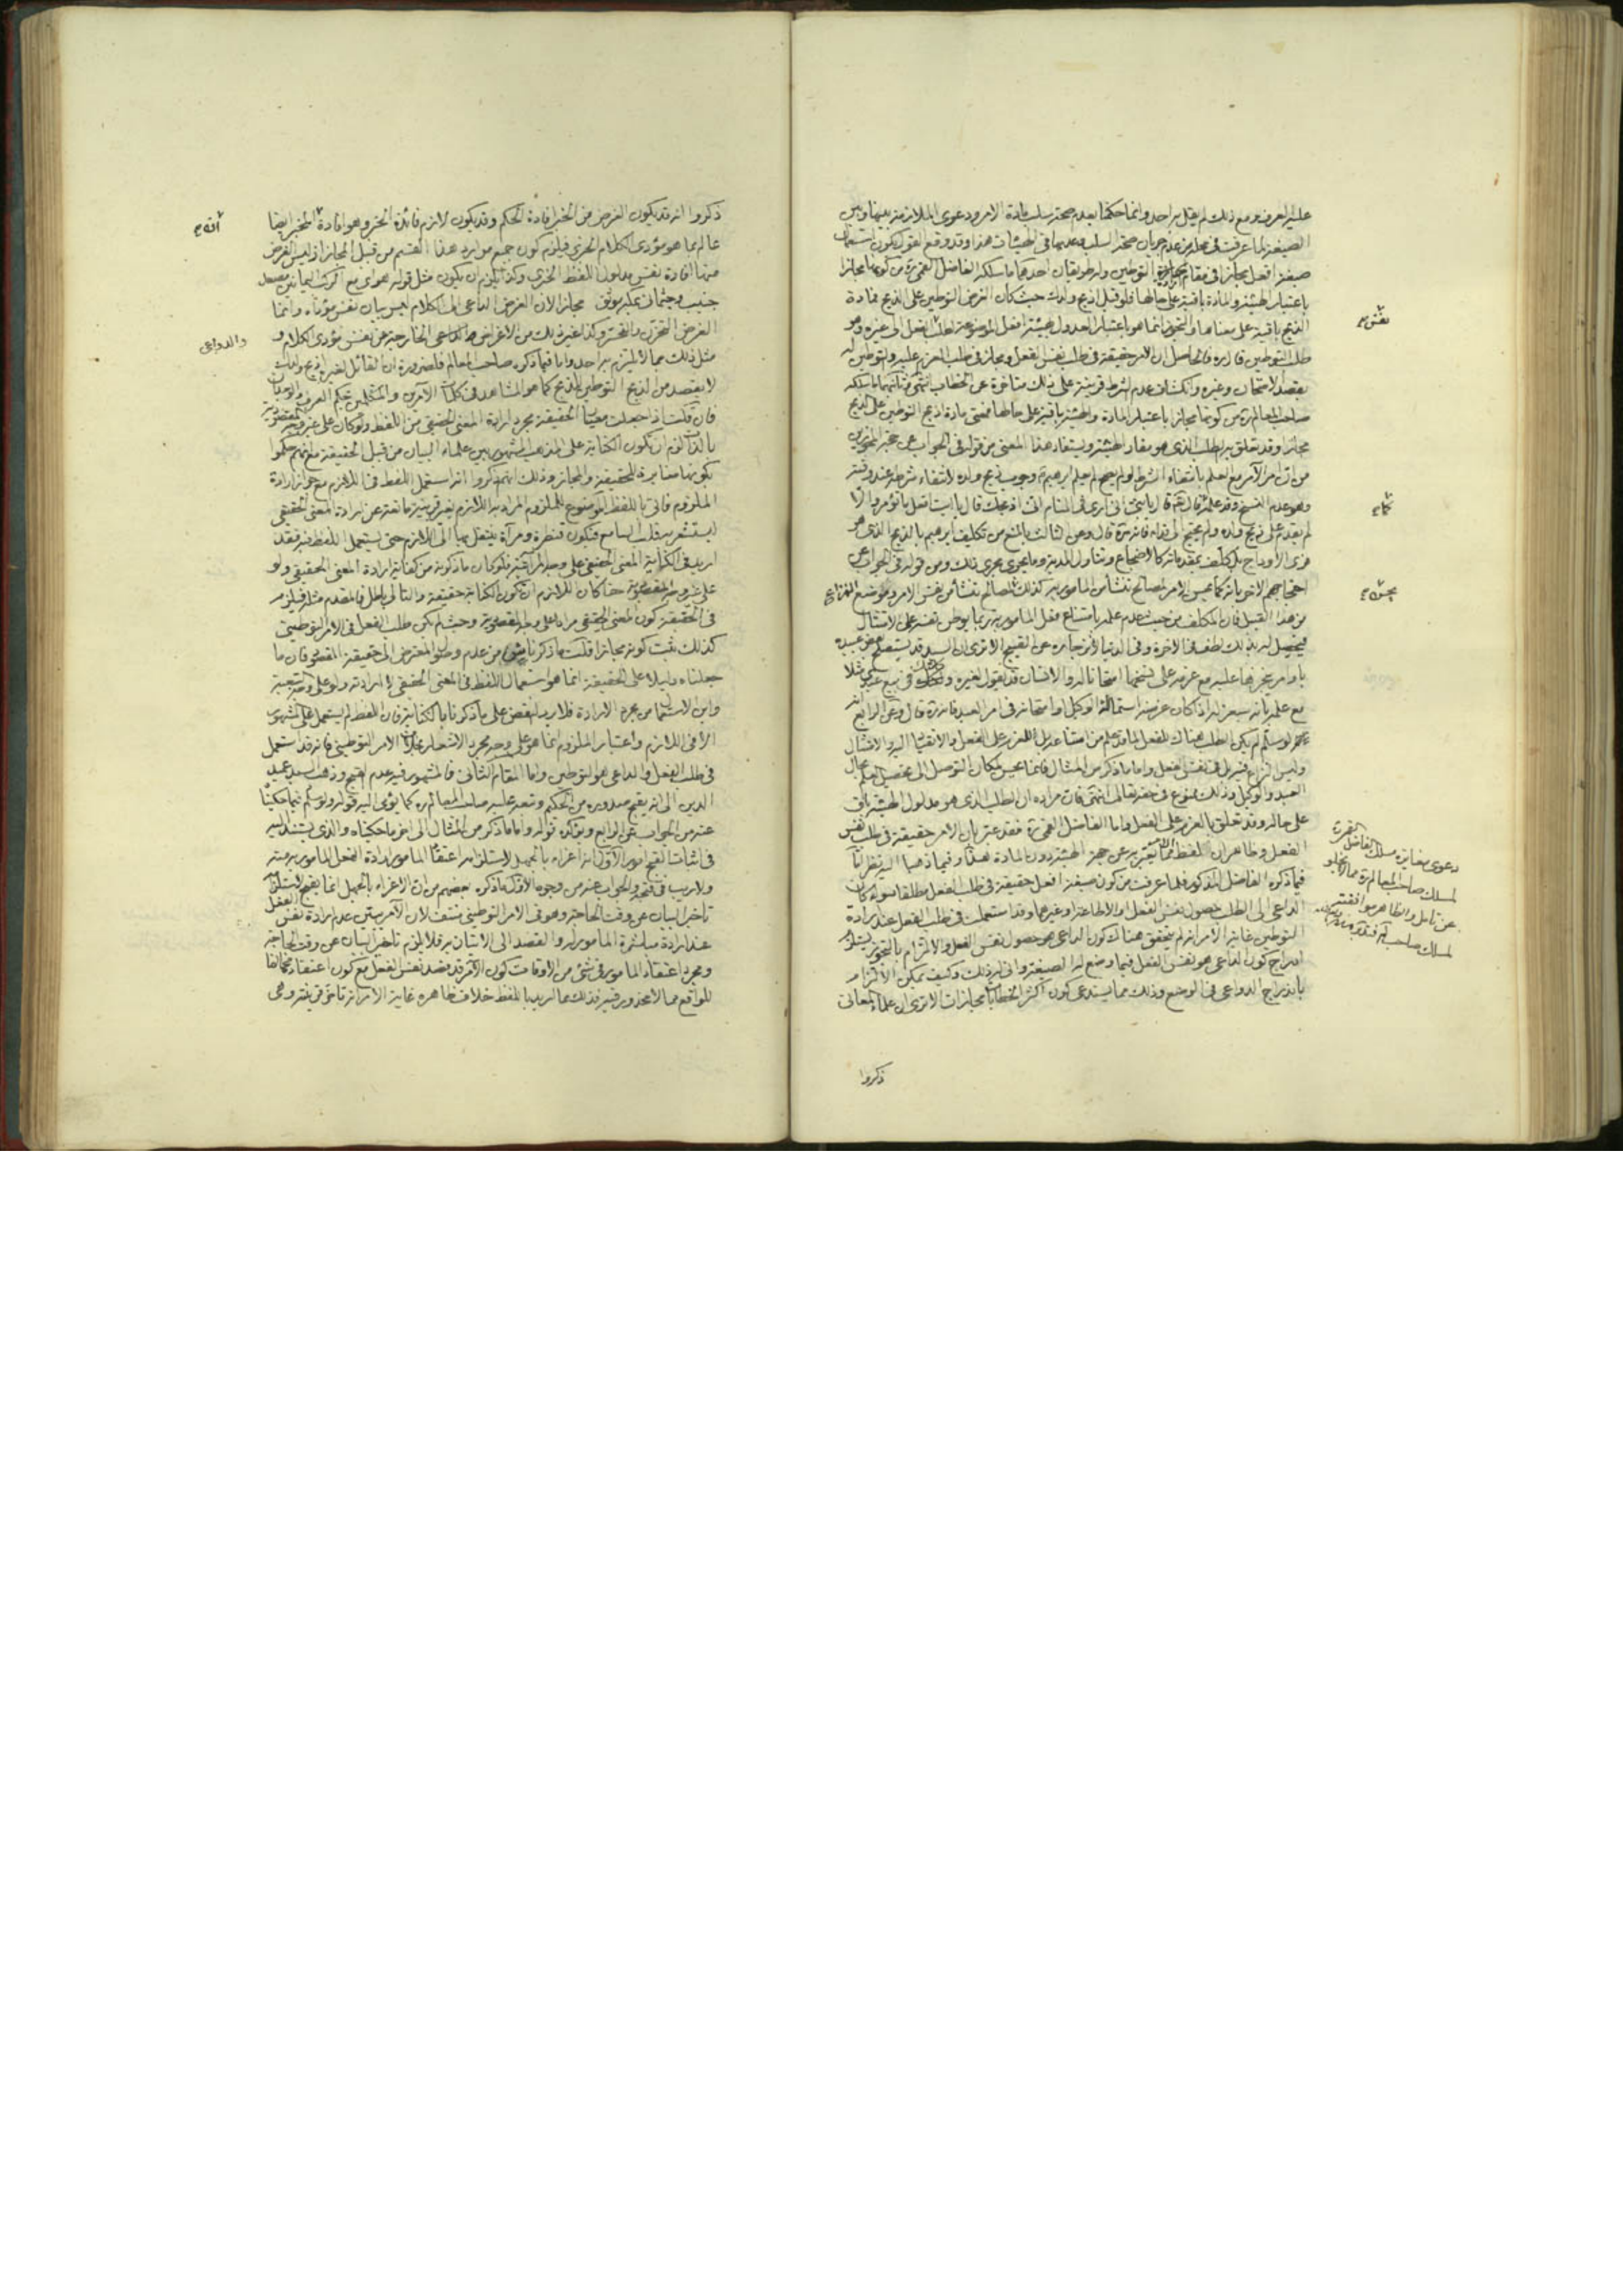 عليه العرف ومع ذلك لم يقل به احد وانما حكمنا بعدم صحة سلب مادة الامر ودعوى الملازمة بينها وبين
الصيغة لما عرفت في محله من عدم جريان صحة السلب وعدمها في الهيئات هذا وقد وقع القول بكون استعمال
صيغة افعل مجازا في مقام ارادة التوطين وله طريقان احدهما ما سلكه الفاضل القمي ره من كونها مجازا
باعتبار الهيئة والمادة باقية على حالها فلو قيل اذبح ولدك حيث كان الغرض التوطين على الذبح فمادة
الذبح باقية على معناها والتجوز انما هو باعتبار العدول هيئة افعل الموضوعة لطلب الفعل الى غيره وهو
طلب التوطين فالحاصل ان الامر حقيقة في طلب نفس الفعل ومجاز في طلب العزم عليه والتوطين له
بقصد الامتحان وغيره وانكشاف عدم الشرط قرينة على ذلك متأخرة عن الخطاب انتهى ثانيهما ما سلكه
صاحب المعالم ره من كونها مجازا باعتبار المادة والهيئة باقية على حالها فمعنى مادة اذبح التوطين على الذبح
مجازا وقد تعلق به الطلب الذي هو مفاد الهيئة ويستفاد هذا المعنى من قوله في الجواب عن حجة المجوزين
من ان امر الآمر مع العلم بانتفاء الشرط لو لم يصح لم يعلم ابرهيم وجوب ذبح ولده لانتفاء شرطه عند وقته
وهو عدم النسخ وقد علمه قال يا بني اني ارى في المنام اني اذبحك قال يا ابت افعل ما تؤمر والا
لم يقدم على ذبح ولده ولم يحتج الى فداء فانه ره قال وعن الثالث بالمنع من تكليف ابرهيم بالذبح الذي هو
فري الأوداج بل كلف بمقدماته كالاضجاع وتناول المدية وما يجري مجرى ذلك ومن قوله في الجواب عن
احتجاجهم الاخر بانه كما يحسن الامر لمصالح تنشأ من المأمور به كذلك لمصالح تنشأ من نفس الامر وموضع النزاع
من هذا القبيل فان المكلف من حيث عدم علمه بامتناع فعل المأمور به ربما يوطن نفسه على الامتثال
فيحصل له بذلك لطف في الاخرة وفي الدنيا لانزجاره عن القبيح الا ترى ان السيد قد يستصلح بعض عبيده
باوامر ينجزها عليه مع عزمه على نسخها امتحانا له والانسان قد يقول لغيره وكلتك في بيع عبدي مثلا
مع علمه بانه سيعزله اذا كان غرضه استمالة الوكيل او امتحانه في امر العبد فانه ره قال وعن الرابع
انه لو سلم لم يكن الطلب هناك للفعل لما قد علم من امتناعه بل للعزم على الفعل والانقياد اليه والامتثال
وليس النزاع فيه بل في نفس الفعل واما ما ذكر من المثال فانما يحسن لمكان التوصل الى تحصيل العلم بحال
العبد والوكيل وذلك ممتنع في حقه تعالى انتهى فان مراده ان الطلب الذي هو مدلول الهيئة باق
على حاله وقد تعلق بالعزم على الفعل واما الفاضل القمي ره فقد عبر بان الامر حقيقة في طلب نفس
الفعل وظاهر ان لفظ الامر يعبر به عن جهة الهيئة دون المادة هذا وفيما ذهبا اليه نظر اما
فيما ذكره الفاضل المذكور فلما عرفت من كون صيغة افعل حقيقة في طلب الفعل مطلقا سواء كان
الداعي الى الطلب حصول نفس الفعل او الاطاعة او غيرهما وقد استعملت في طلب الفعل عند ارادة
التوطين غاية الامر انه لم يتحقق هناك كون الداعي هو حصول نفس الفعل والالتزام بالتجوز يستلزم
ادراج كون الداعي هو نفس الفعل فيما وضع له الصيغة واني له بذلك وكيف يمكن الالتزام
باندراج الدواعي في الوضع وذلك مما يستدعي كون اكثر الخطابات مجازات الا ترى ان علماء المعاني
نفس
كما
يحسن
دعوى مغايرة مسلك الفاضل القمي ره
لمسلك صاحب المعالم ره مما لا يخلو
عن تامل والظاهر موافقته
ذكروا
ذكروا انه قد يكون الغرض من الخبر افادة الحكم وقد يكون لازم فائدة الخبر وهو افادة المخبر ايضا
عالم بما هو مؤدى الكلام الخبري فيلزم كون جميع موارد هذا القسم من قبيل المجاز اذ ليس الغرض
منها افادة نفس مدلول اللفظ الخبري وكذا يلزم ان يكون مثل قوله هواي مع الركب اليمانين مصعد
جنيب وجثماني بمكة موثق مجازا لان الغرض الداعي الى الكلام ليس بيان نفس مؤداه وانما
الغرض التحزن والتحسر وكذا غير ذلك من الاغراض الخارجة عن نفس مؤدى الكلام و
مثل ذلك مما لا يلتزم به احد واما فيما ذكره صاحب المعالم فلضرورة ان القائل لغيره اذبح ولدك
لا يقصد من الذبح التوطين للذبح كما هو المشاهد في كلمات الآمرين والمتكلمين بحكم العرف والوجدان
فان قلت اذا جعلت معيار الحقيقة مجرد ارادة المعنى الحقيقي من اللفظ ولو كان على غير وجه المقصودية
بالذات لزم ان تكون الكناية على المذهب المشهور بين علماء البيان من قبيل الحقيقة مع انهم حكموا
بكونها مغايرة للحقيقة والمجاز وذلك انهم ذكروا انه استعمل اللفظ في اللازم مع جواز ارادة
الملزوم فاتى باللفظ الموضوع للملزوم المراد به اللازم بغير قرينة مانعة عن ارادة المعنى الحقيقي
ليستشعر به قلب السامع فتكون قنطرة ومرآة ينتقل بها الى اللازم حتى يستعمل اللفظ فيه فقد
اريد في الكناية المعنى الحقيقي على وجه المرآتية فلو كان ما ذكرته من كفاية ارادة المعنى الحقيقي ولو
على غير وجه المقصودية حقا كان اللازم ان تكون الكناية حقيقة والتالي باطل فالمقدم مثله فيلزم
في الحقيقة كون المعنى الحقيقي مرادا على وجه المقصودية وحيث لم يكن طلب الفعل في الامر التوطيني
كذلك ثبت كونه مجازا قلت ما ذكر ناش من عدم وصول المعترض الى حقيقة المقصود فان ما
جعلناه دليلا على الحقيقة انما هو استعمال اللفظ في المعنى الحقيقي لا ارادته ولو على وجه التبعية
واين الاستعمال من مجرد الارادة فلا يرد النقض على ما ذكرنا بالكناية فان اللفظ لم يستعمل على المشهور
الا في اللازم واعتبار الملزوم انما هو على وجه مجرد الاشعار بخلاف الامر التوطيني فانه قد استعمل
في طلب الفعل والداعي هو التوطين واما المقام الثاني فالمشهور فيه عدم القبح وذهب السيد عميد
الدين الى انه يقبح صدوره من الحكيم وتبعه عليه صاحب المعالم ره كما يؤمي اليه قوله ولو سلم فيما حكيناه
عنه من الجواب عن الرابع ويؤكده قوله واما ما ذكر من المثال الى اخر ما حكيناه والذي يستند اليه
في اثبات القبح امور الاول انه اغراء بالجهل لاستلزامه اعتقاد المأمور ارادة الفعل المأمور به منه
ولا ريب في قبحه والجواب عنه من وجوه الاول ما ذكره بعضهم من ان الاغراء بالجهل انما يقبح لاستلزامه
تأخير البيان عن وقت الحاجة وهو في الامر التوطيني منتف لان الآمر يبين عدم ارادة نفس الفعل
عند ارادة مباشرة المأمور له والقصد الى الاتيان به فلا يلزم تأخير البيان عن وقت الحاجة
ومجرد اعتقاد المأمور في شئ من الاوقات كون الآمر قد قصد نفس الفعل مع كون اعتقاده مخالفا
للواقع مما لا محذور فيه فذلك مما اريد باللفظ خلاف ظاهره غاية الامر انه تأخر قرينته وهي
انه
والدواعي